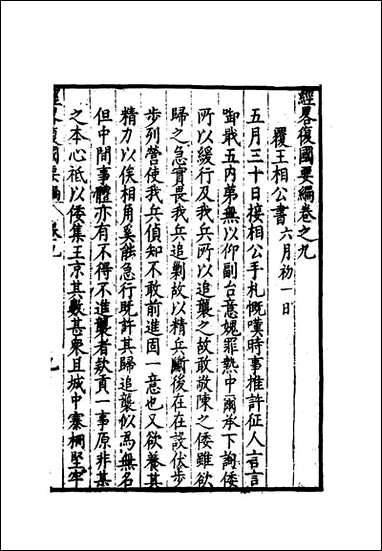 經畧復國要編卷之九
覆王相公書 六月初一日
五月三十日接相公手札慨嘆時事推許征人言言
啣戢五內第無以仰副台意媿罪熱中爾承下詢倭
所以緩行及我兵所以追襲之故敢敬陳之倭雖欲
歸之急實畏我兵追剿故以精兵斷後在在設伏步
步列營使我兵偵知不敢前進固一意也又欲養其
精力以俟相角奚能急行旣許其歸追襲似為無名
但中間事體亦有不得不追襲者欵貢一事原非某
之本心祗以倭集王京其數甚衆且城中寨柵堅牢
經畧復國要編 卷九